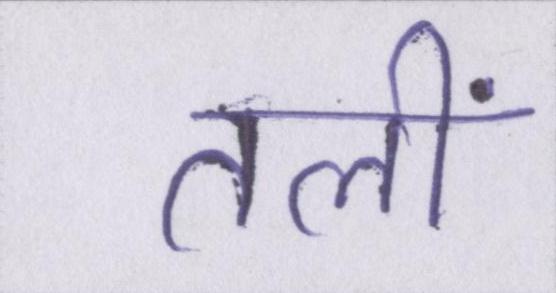 तलीं